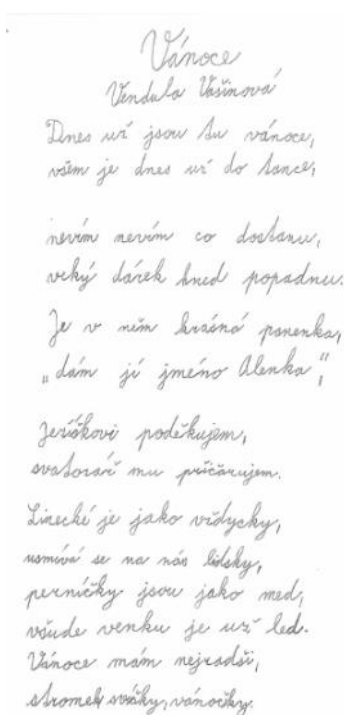 Vánoce
Vendula Vašinová
Dnes už jsou tu vánoce,
všem je dnes už do tance,
nevím nevím co dostanu,
velký dárek hned popadnu.
Je v něm krásná panenka,
„dám jí jméno Alenka",
Ježíškovi poděkujem,
svatozář mu přičarujem.
Linecké je jako vždycky,
usmívá se na nás lidsky,
perníčky jsou jako med,
všude venku je už led.
Vánoce mám nejradši,
stromek, svíčky, vánočky.